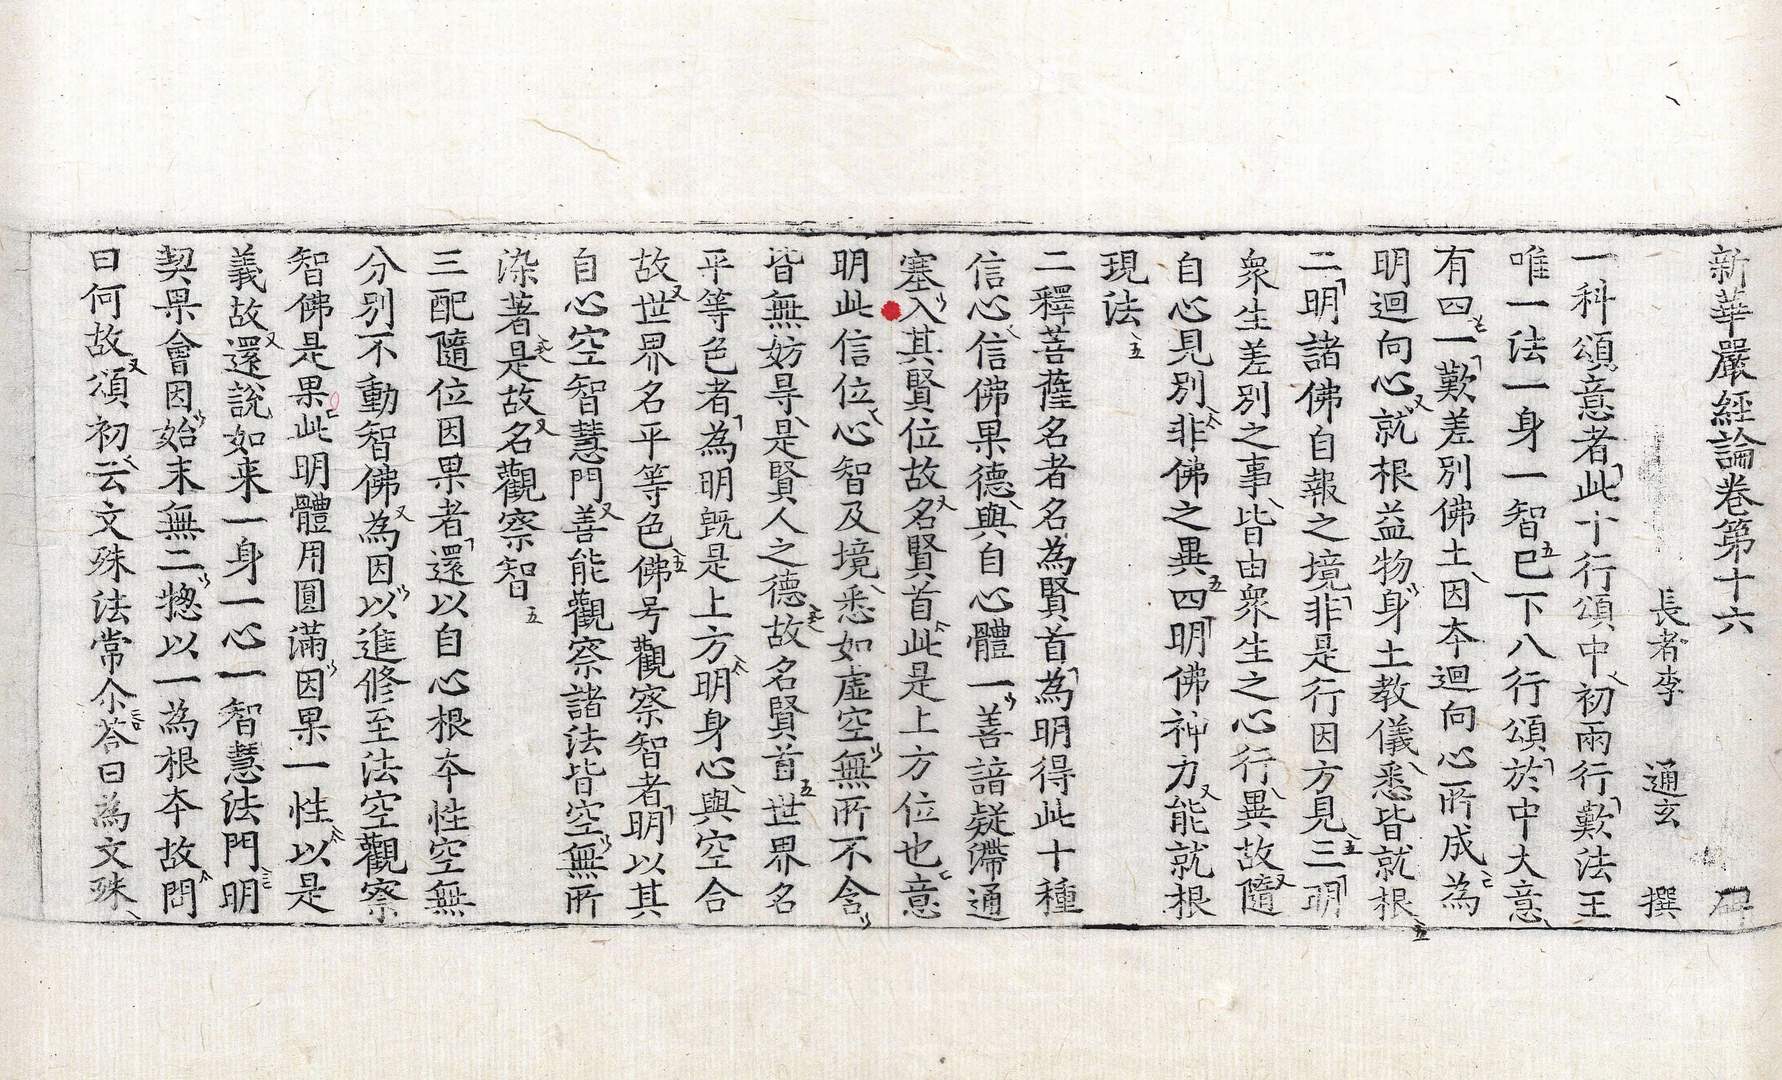 新華嚴經論卷第十六 碑
長者李 通玄 撰
一科頌意者此十行頌中初兩行歎法王
唯一法一身一智已下八行頌於中大意
有四一歎差別佛土因夲迴向心所成為
明迴向心就根益物身土教儀悉皆就根
二明諸佛自報之境非是行因方見三明
衆生差別之事皆由衆生之心行異故隨
自心見別非佛之異四明佛神力能就根
現法
二釋菩薩名者名為賢首為明得此十種
信心信佛果德與自心體一善諳疑滯通
塞入其賢位故名賢首此是上方位也意
明此信位心智及境悉如虛空無所不含
皆無妨㝵是賢人之德故名賢首世界名
平等色者為明旣是上方明身心與空合
故世界名平等色佛号觀察智者明以其
自心空智慧門善能觀察諸法皆空無所
染著是故名觀察智
三配隨位因果者還以自心根夲性空無
分別不動智佛為因以進修至法空觀察
智佛是果此明體用圓滿因果一性以是
義故還說如来一身一心一智慧法門明
契果會因始末無二揔以一為根夲故問
曰何故頌初云文殊法常尒荅曰為文殊